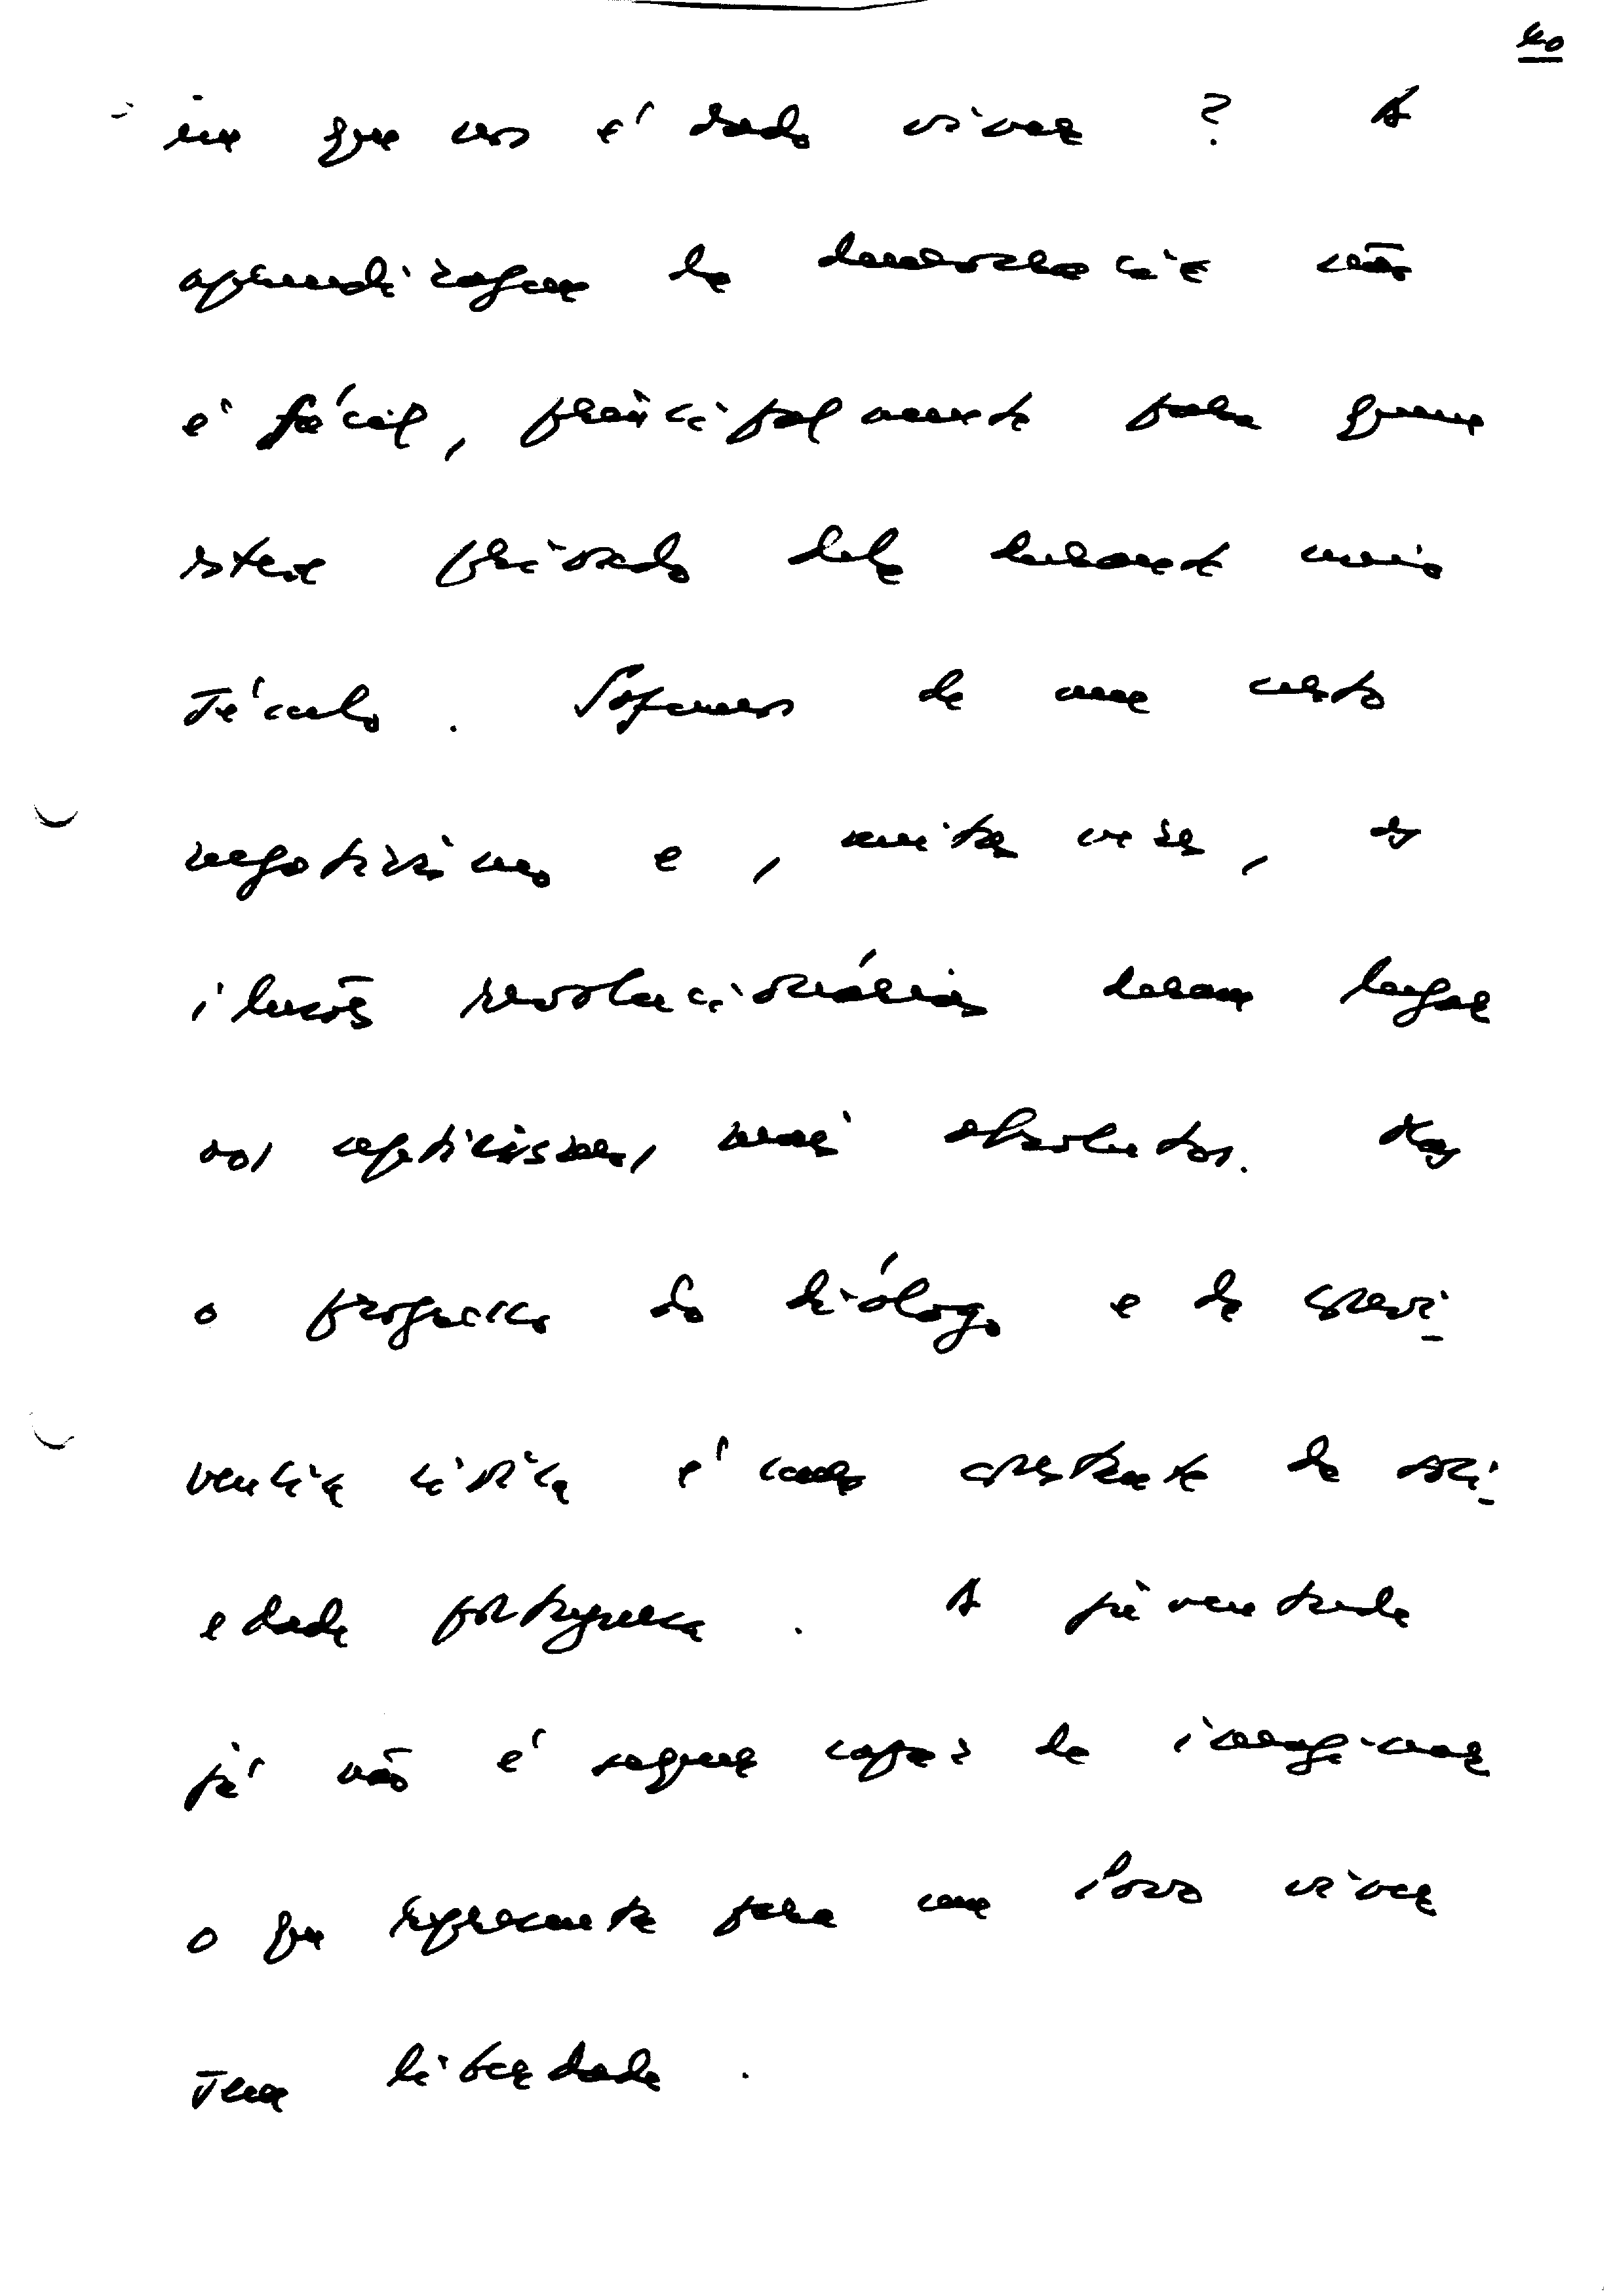 40
em que nos é dado viver? A
aprendizagem da democracia não
é fácil, principalmente para quem
esteve privado dela durante meio
século. Sofremos de um certo
negativismo e, muitas vezes, as
ilusões revolucionárias deram lugar
aos cepticismos mais absolutos. Mas
o progresso do diálogo e da convi-
vência cívica é uma constante da soci-
edade portuguesa. A juventude
já não é sequer capaz de imaginar
o que representa para um Povo viver
sem liberdade.